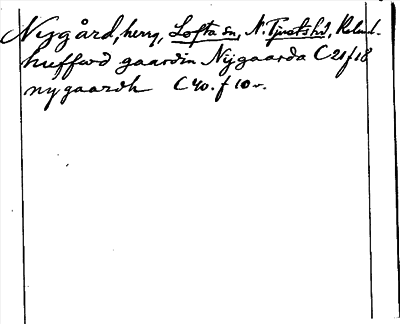 Nygård, herrg, Lofta sn, N. Tjusts hd, Kalmar
huffwd gaardin Nijgaarda C 21 f 18
ny gaardh C 40. f 10 v.